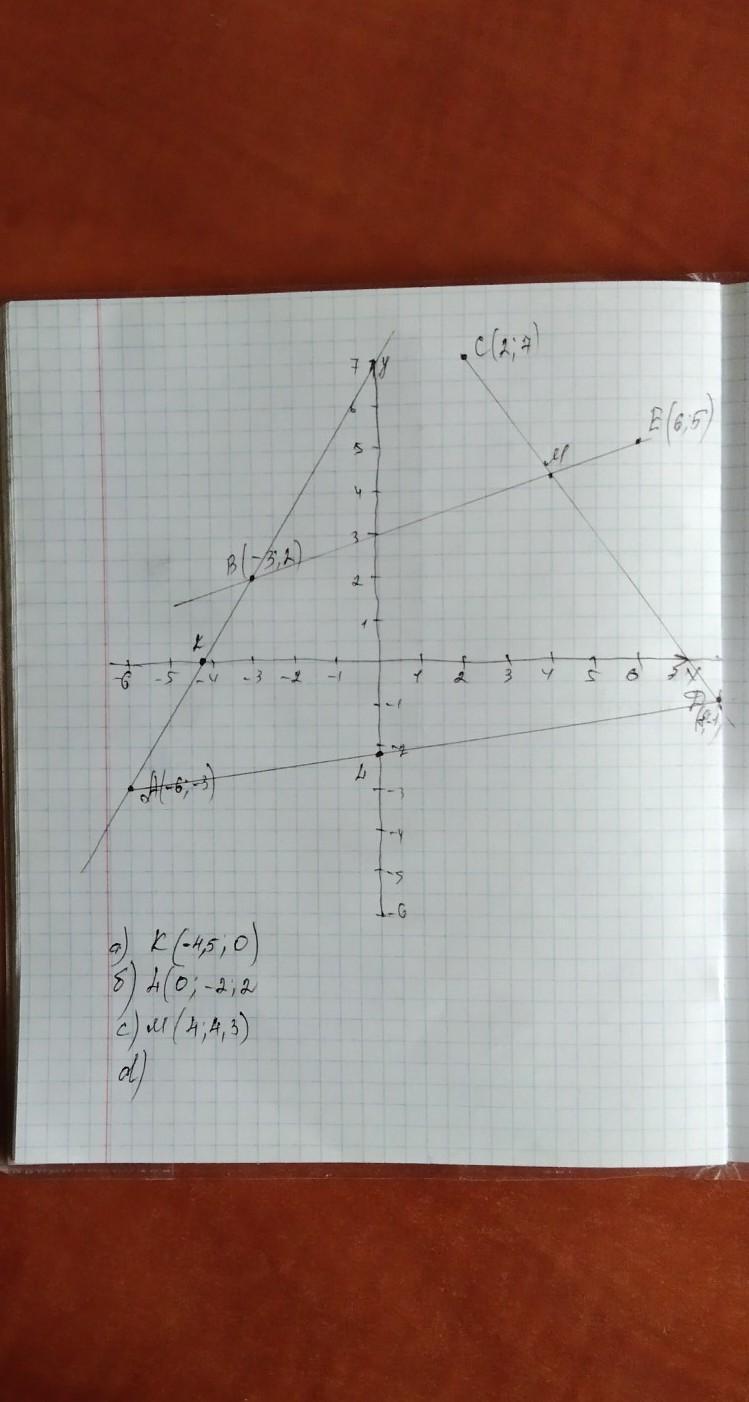 7 y
C(2;7)
6
E(6;5)
5
M
4
3
B(-3;2)
2
1
K
-6 -5 -4 -3 -2 -1 1 2 3 4 5 6 7 X
-1
D
-2
L
A(-6;-3)
-3
-4
-5
-6
а) K(-4,5; 0)
б) L(0; -2;2
c) M(4; 4,3)
d)